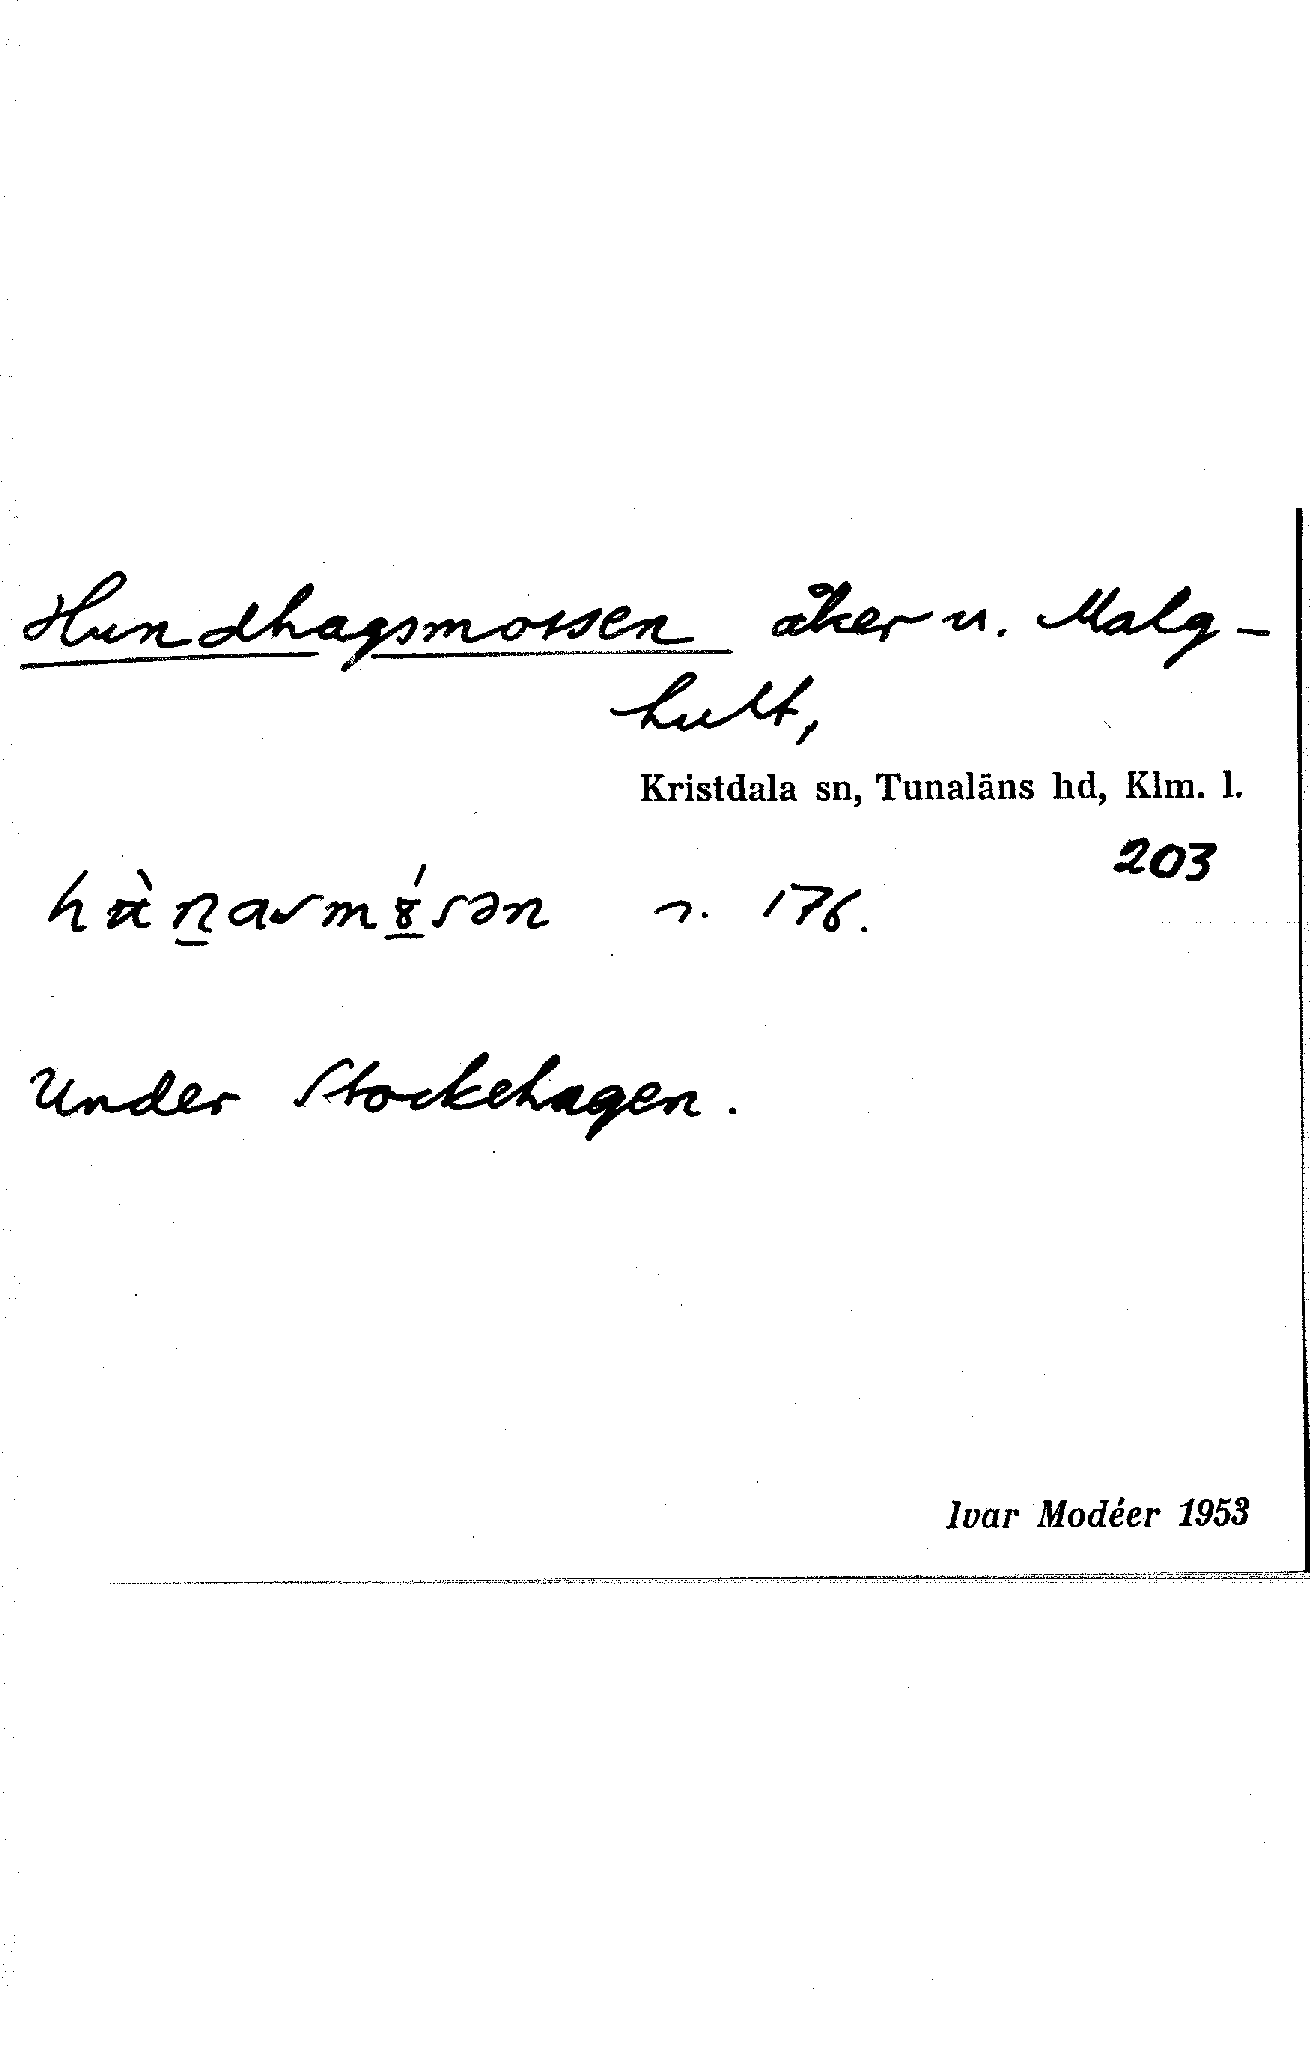 Hundhagsmossen åker u. Malg-
hult,
Kristdala sn, Tunaläns hd, Klm. l.
203
176.
Under Stockehagen.
Ivar Modéer 1953